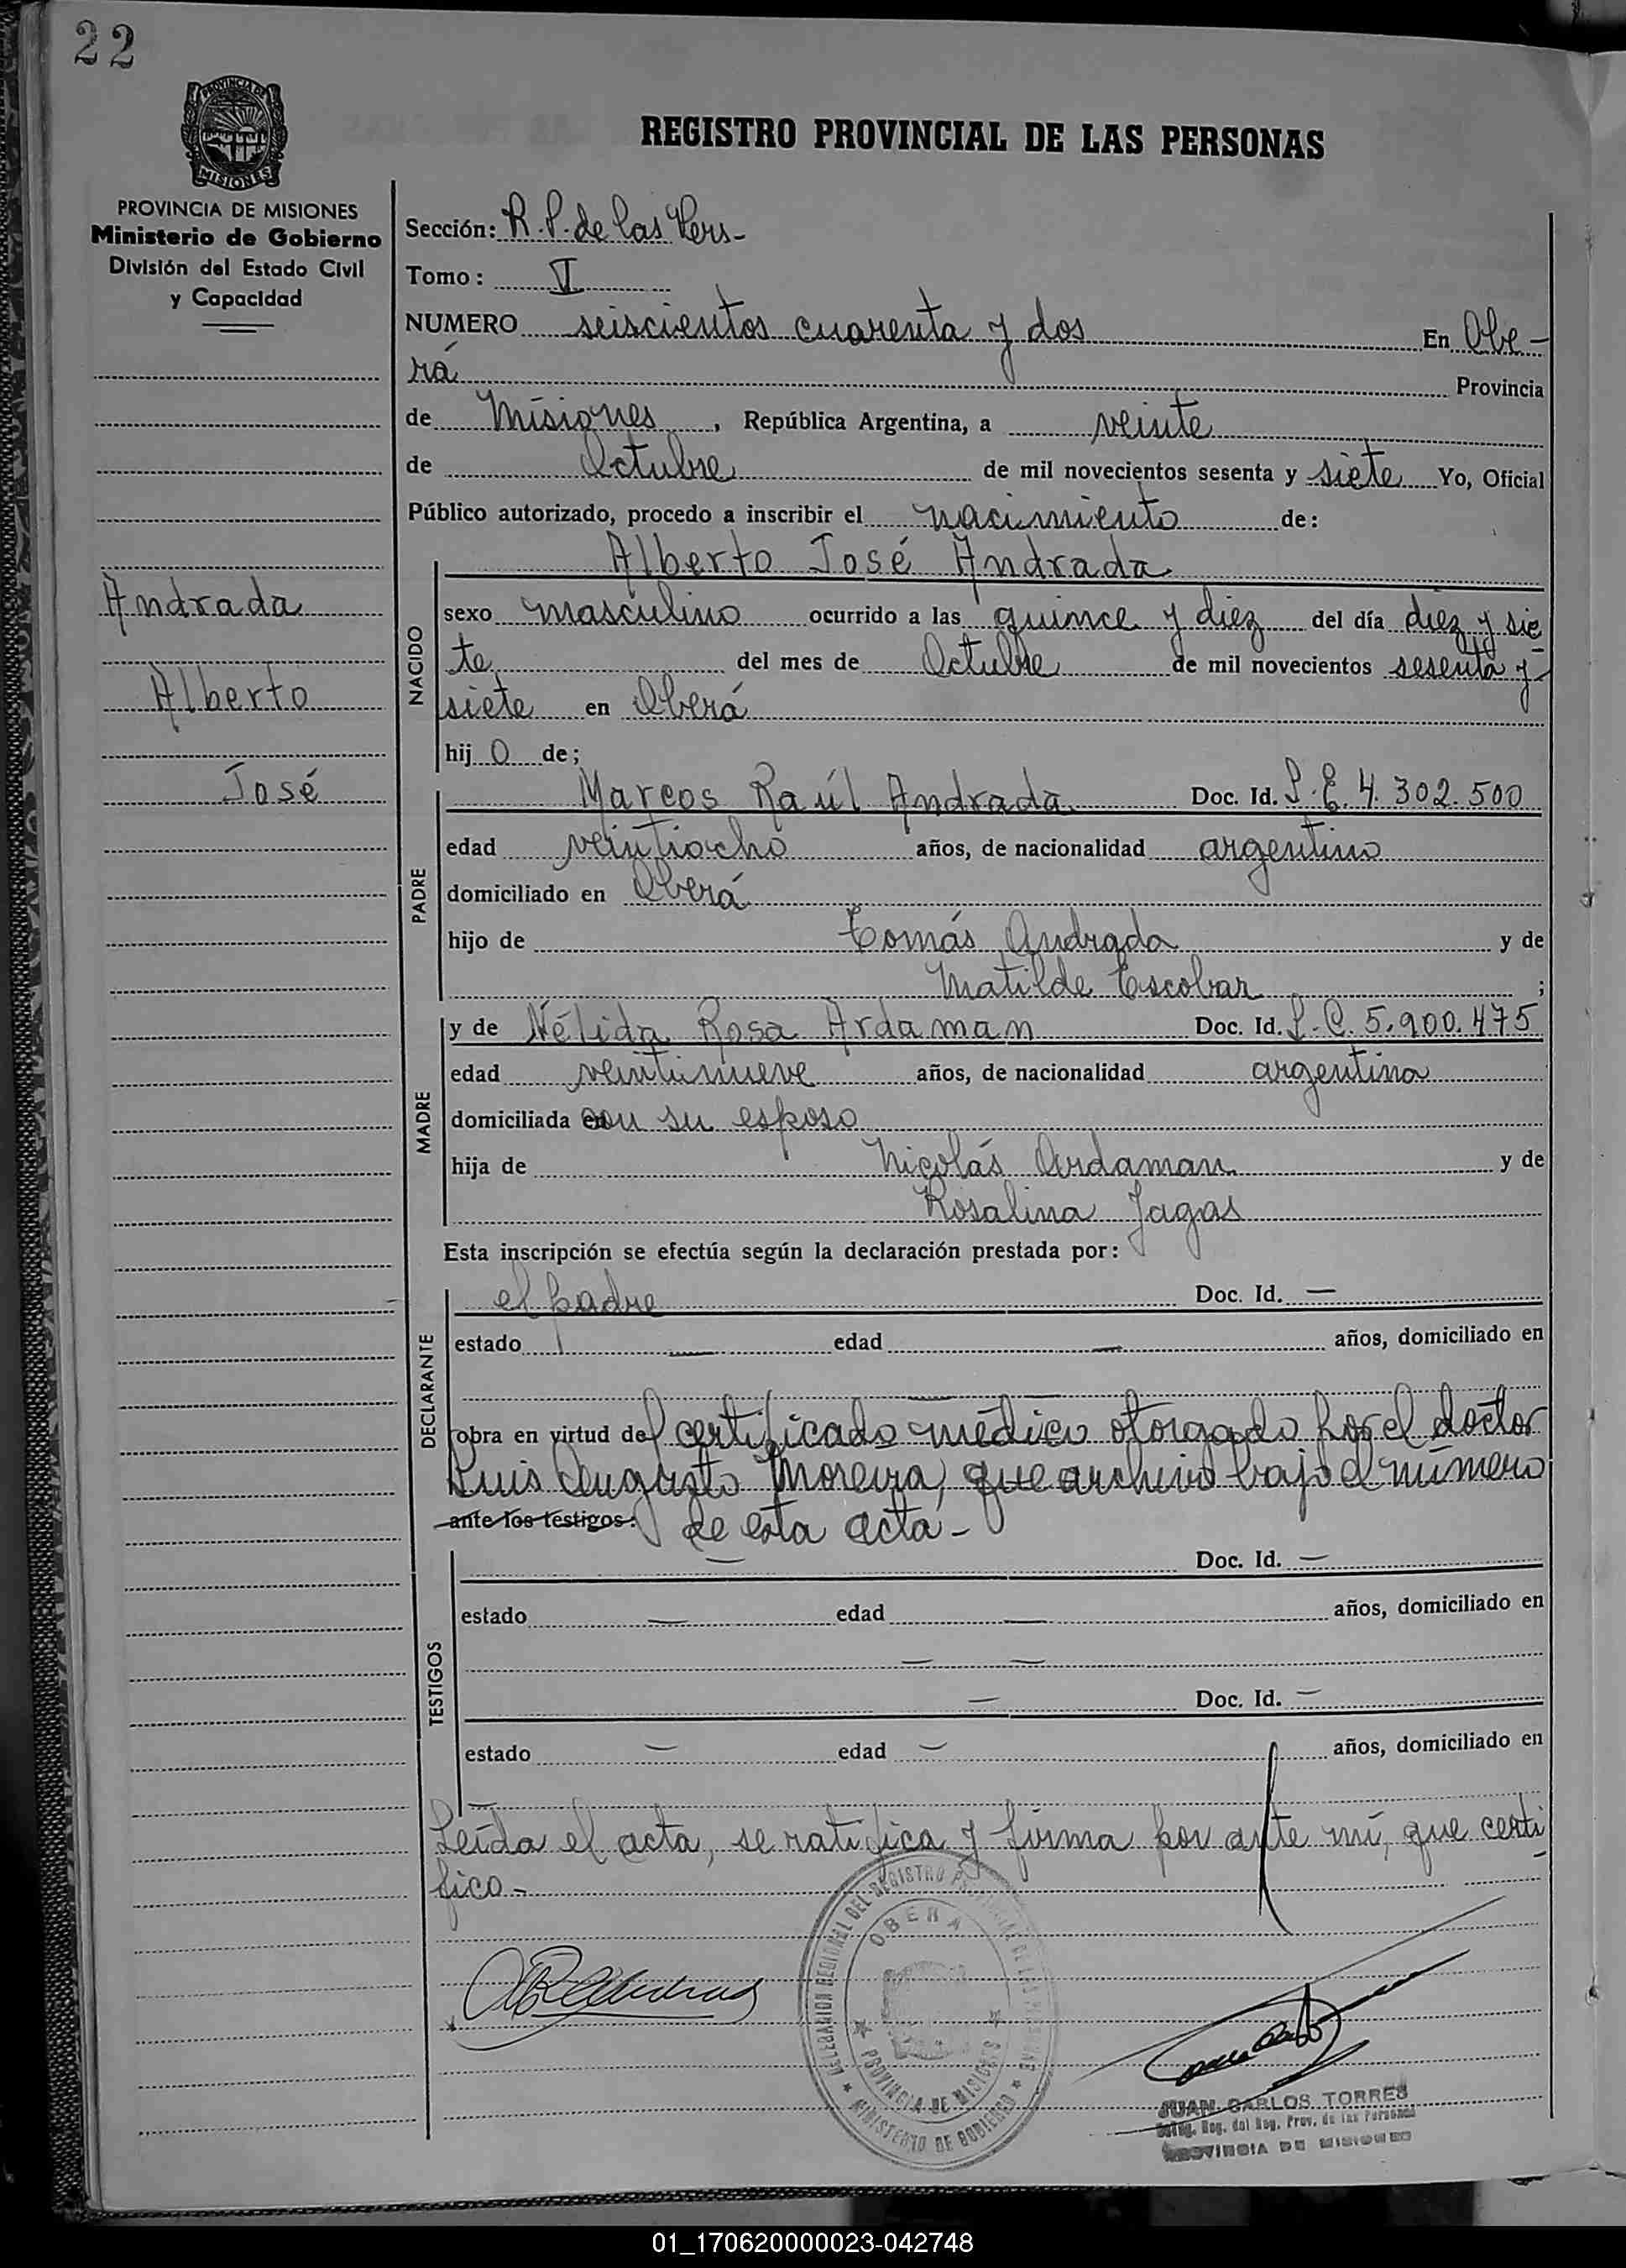 22
PROVINCIA DE
MISIONES
REGISTRO PROVINCIAL DE LAS PERSONAS
PROVINCIA DE MISIONES
Ministerio de Gobierno
División del Estado Civil
y Capacidad
Andrada
Alberto
José
Sección: R. P. de las Pers-
Tomo: V
NUMERO seiscientos cuarenta y dos En Obe-
rá Provincia
de Misiones, República Argentina, a veinte
de Octubre de mil novecientos sesenta y siete Yo, Oficial
Público autorizado, procedo a inscribir el nacimiento de:
NACIDO
Alberto José Andrada
sexo masculino ocurrido a las quince y diez del día diez y sie
te del mes de Octubre de mil novecientos sesenta y
siete en Oberá
hij o de;
PADRE
Marcos Raúl Andrada Doc. Id. L. E. 4. 302. 500
edad veintiocho años, de nacionalidad argentino
domiciliado en Oberá
hijo de Tomás Andrada y de
Matilde Escobar ;
MADRE
y de Nélida Rosa Ardaman Doc. Id. L. C. 5. 900. 475
edad veintinueve años, de nacionalidad argentina
domiciliada con su esposo
hija de Nicolás Ardaman y de
Rosalina Jagas
Esta inscripción se efectúa según la declaración prestada por:
DECLARANTE
el padre Doc. Id. —
estado — edad — años, domiciliado en
— —
obra en virtud del certificado médico otorgado por el doctor
Luis Augusto Moreira, que archivo bajo el número
ante los testigos: de esta acta -
TESTIGOS
— Doc. Id. —
estado — edad — años, domiciliado en
— —
— Doc. Id. —
estado — edad — años, domiciliado en
Leída el acta, se ratifica y firma por ante mí, que certi
fico -
DELEGACION REGIONAL DEL REGISTRO PROVINCIAL DE LAS PERSONAS
OBERA
PROVINCIA DE MISIONES
MINISTERIO DE GOBIERNO
JUAN CARLOS TORRES
Deleg. Reg. del Reg. Prov. de las Personas
PROVINCIA DE MISIONES
01_170620000023-042748